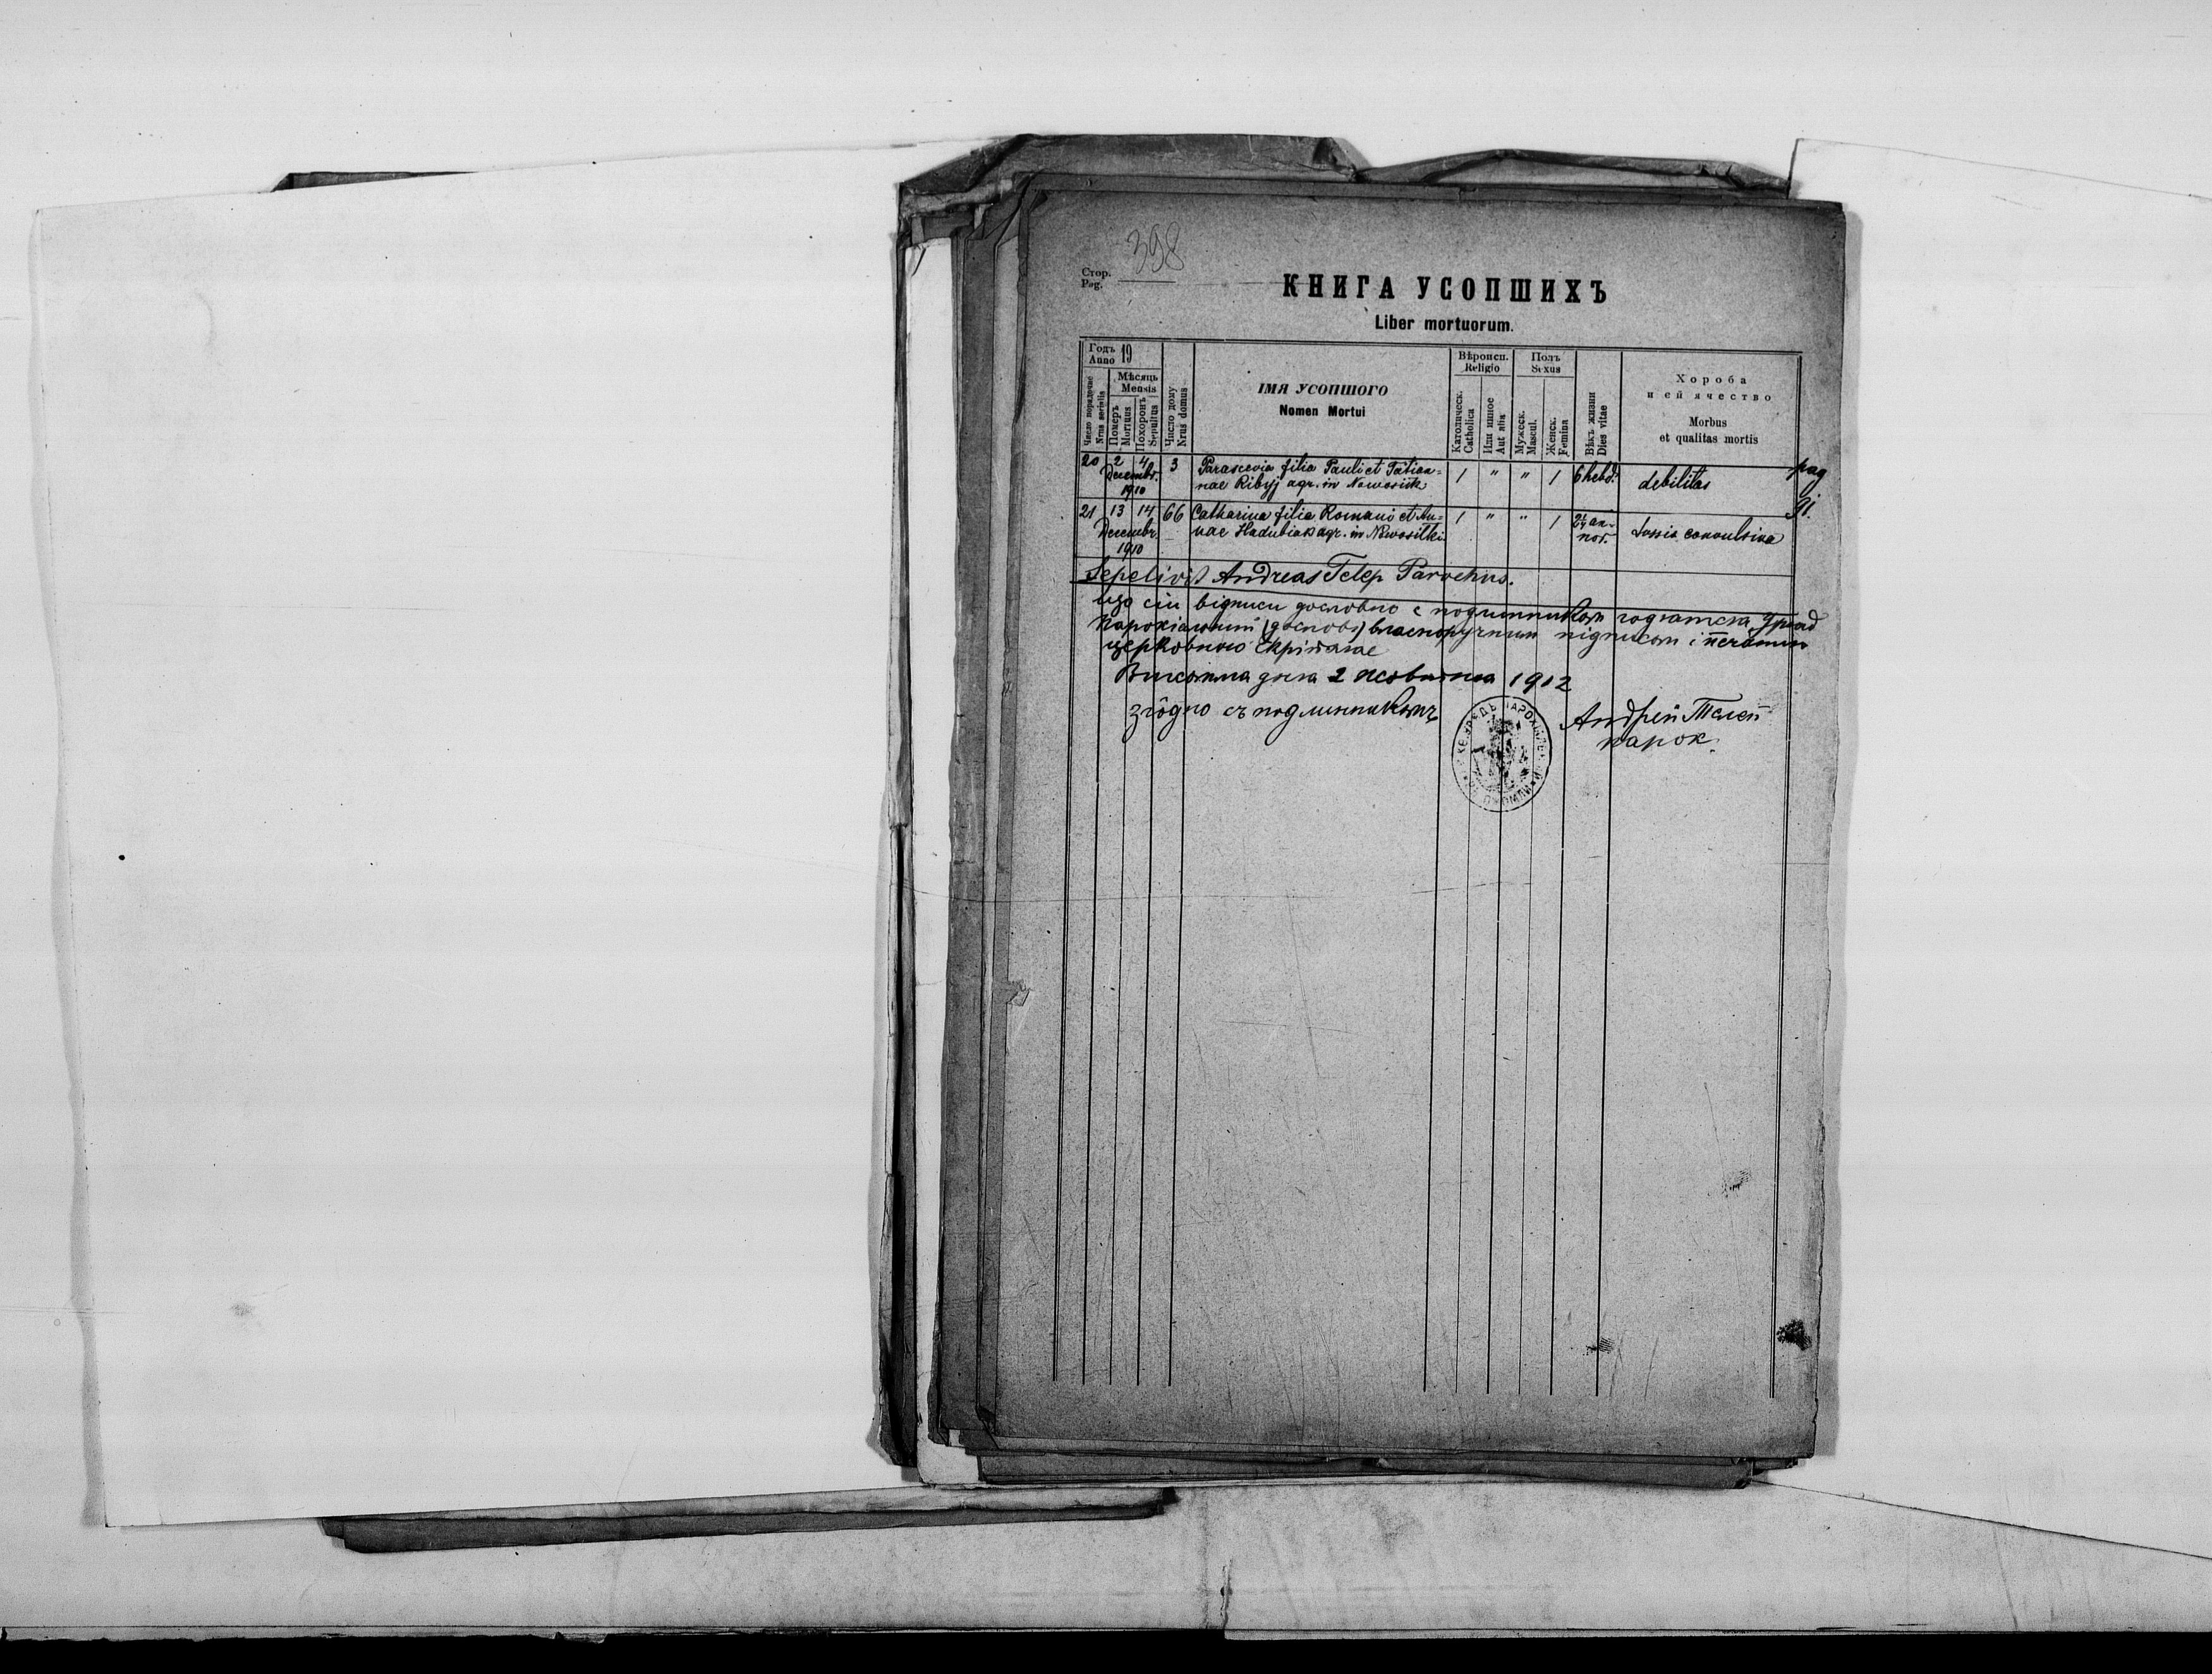 398
Стор.
Pag.
КНИГА УСОПШИХЪ
Liber mortuorum.
Годъ
Anno 19
Мѣсяць
Mensis
Число порядочне
Nrus serialis
Померъ
Mortuus
Похоронъ
Sepultus
Число дому
Nrus domus
ІМЯ УСОПШОГО
Nomen Mortui
Вѣроисп.
Religio
Католическ.
Catholica
Или инное
Aut alia
Полъ
Sexus
Мужеск.
Mascul.
Женск.
Femina
Вѣкъ жизни
Dies vitae
Хороба
и ей ячество
Morbus
et qualitas mortis
20 2 4 3 Parascevia filia Pauli et Tatian= 1 " " 1 6 hebd. debilitas pag
Decembr. nae Ribyj agr. in Nowosiłk. 91.
1910
21 13 14 66 Catharina filia Romani et An= 1 " " 1 2 1/4 an= tussis convulsiva
Decembr. nae Hadubiak agr. in Nowosiłki nor.
1910
Sepelivit Andreas Telep Parochus.
що сіи відписи дословно с подлинником годятся, Уряд
парохіальний власноручним підписом і печатию
церковною скріпляє
дня 2 1912
згôдно съ подлинникомъ
Андрей Телеп
парох.